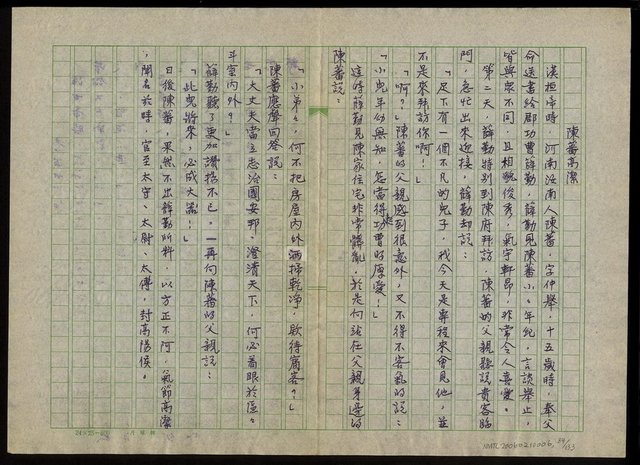 陳蕃高潔
漢桓帝時，河南汝南人陳蕃，字仲舉，十五歲時，奉父
命送書給郡功曹薛勤，薛勤見陳蕃小小年紀，言談舉止，
皆與眾不同，且相貌俊秀，氣宇軒昂，非常令人喜愛。
第二天，薛勤特別到陳府拜訪，陳蕃的父親聽說貴客臨
門，急忙出來迎接，薛勤却說：
「足下有一個不凡的兒子，我今天是專程來會見他，並
不是來拜訪你啊！」
「啊？」陳蕃的父親感到很意外，又不得不客氣的說：
「小兒年幼無知，怎當得起功曹的厚愛！」
這時薛勤見陳家住宅非常髒亂，於是向站在父親身邊的
陳蕃說：
「小弟弟，何不把房屋內外洒掃乾净，欵待賓客？」
陳蕃應聲回答說：
「大丈夫當立志治國安邦，澄清天下，何必着眼於區區
斗室內外？」
薛勤聽了更加讚揚不已，一再向陳蕃的父親說：
「此兒將來，必成大器！」
日後陳蕃，果然不出薛勤所料，以方正不阿，氣節高潔
，聞名於時，官至太守、太尉、太傅，封高陽侯。
24×25=600
NMTL20060210006, 84/133